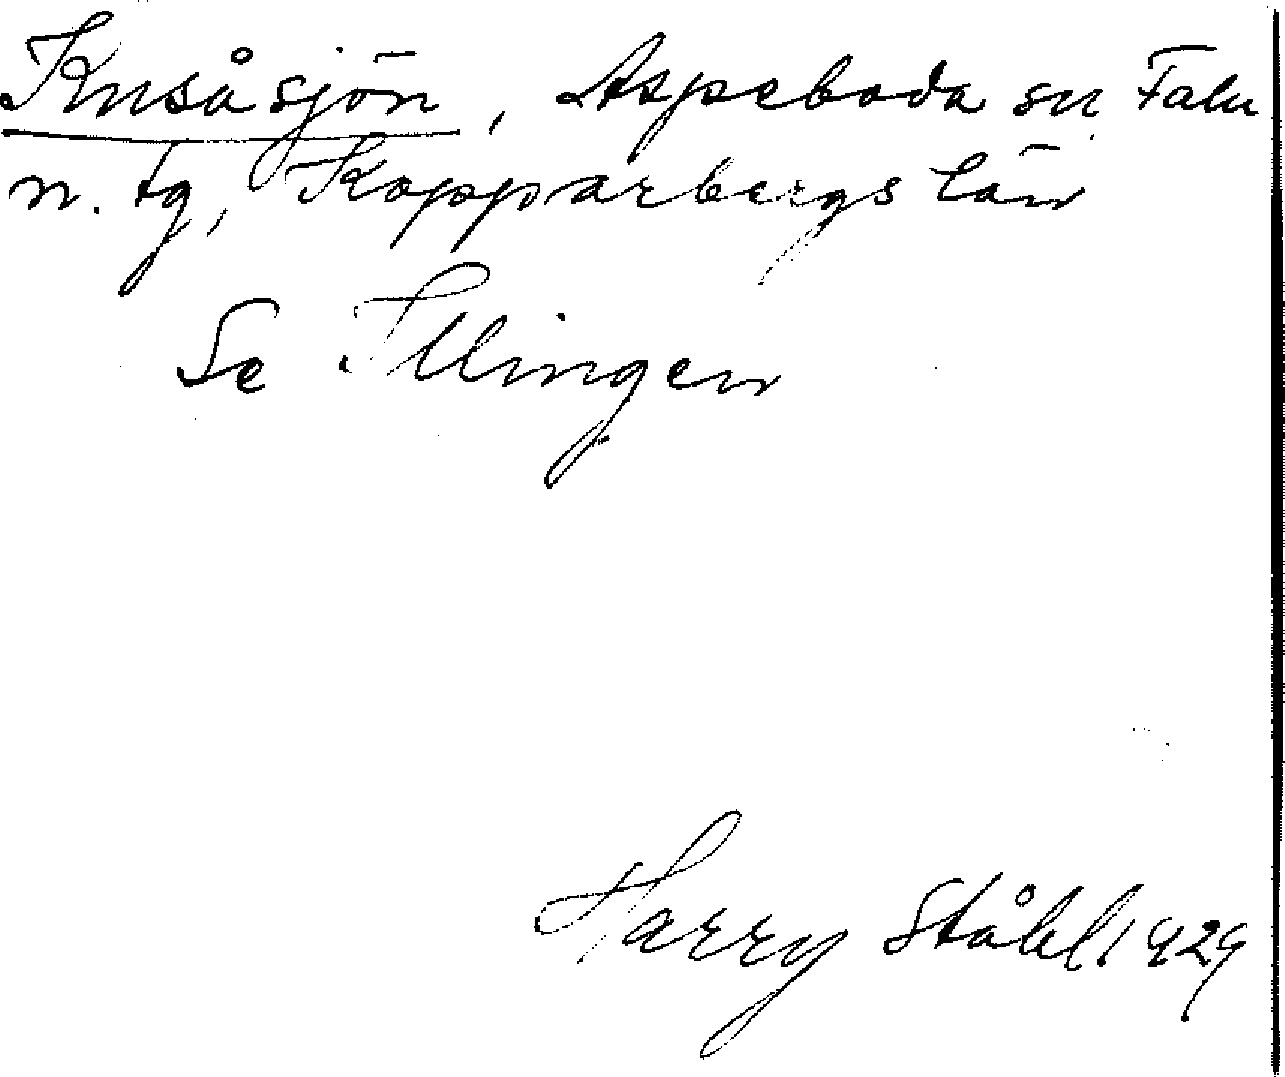 Knsåsjön, Aspeboda sn Falu
n. tg, Kopparbergs län
Se Illingen
Harry Ståhl 1929